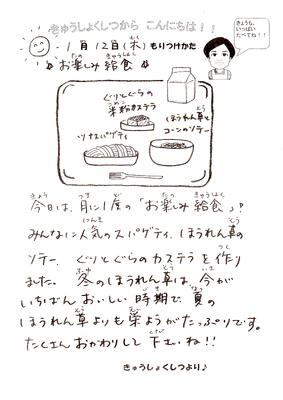 きゅうしょくしつから こんにちは!!
きょうも、
いっぱい
たべてね!!
1月12日(木) もりつけかた
お楽しみ給食
ぐりとぐらの
米粉カステラ
ほうれん草と
コーンのソテー
ツナスパゲティ
今日は、月に1度の「お楽しみ給食」♪
みんなに人気のスパゲティ、ほうれん草の
ソテー、ぐりとぐらのカステラを作り
ました。冬のほうれん草は今が
いちばんおいしい時期で、夏の
ほうれん草よりも栄ようがたっぷりです。
たくさんおかわりして下さいね!!
きゅうしょくしつより♪